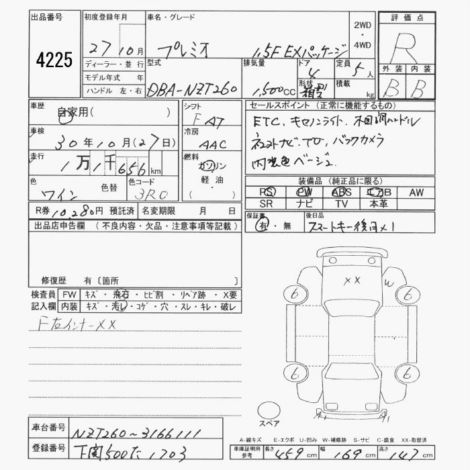 出品店
4225
初度登録年月
27年10月
ディーラー・並行
モデル年式 年
ハンドル 左・右
車名・グレード
プレミオ 1.5F EXパッケージ
2WD
・
4WD
型式
DBA-NZT260
排気量
1,500cc
ドア
4
形状
箱型
定員
5人
積載
kg
評価点
R
外装 内装
B B
車歴
自家用( )
車検
30年10月(27日)
走行
1万1千656km
色
ワイン
色替
色コード
3R0
シフト
FAT
冷房
AAC
燃料
ガソリン
軽・油
セールスポイント(正常に機能するもの)
ETC, キセノンライト, 木目調ハンドル
TV, バックカメラ
内装色ベージュ
装備品(純正品に限る)
PS PW ABS エアB AW
SR ナビ TV 本革
R券 10,280円 預託済
名変期限 月 日
保証書
有・無
後日品
スマートキー後日×1
出品店申告欄(不良内容・欠品・注意事項等記載)
修復歴 有〔箇所 〕
検査員記入欄
FW キズ・飛石・ヒビ割・リペア跡・X要
内装 キズ・汚れ・コゲ・穴・スレ・キレ・破レ
F左インナーXX
XX
W
6 6
6 6
スペア
車台番号
NZT260-3166111
登録番号
下関500た1703
A-線キズ E-エクボ U-凹み W-補修跡 S-サビ C-腐食 XX-取替済
車両寸法
参考
長さ 459cm 幅 169cm 高さ 147cm